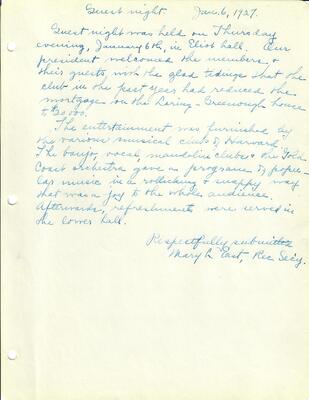 Guest night Jan. 6, 1927.
Guest night was held on Thursday
evening, January 6th, in Eliot hall. Our
president welcomed the members &
their guests with the glad tidings that the
club in the past year had reduced the
mortgage on the Loring-Greenough house
to $30000.
The entertainment was furnished by
the various musical clubs of Harvard.
The banjo, vocal, mandolin clubs & the Gold
Coast orchestra gave a programe of popu-
lar music in a rollicking & snappy way
that was a joy to the whole audience.
Afterwards, refreshments were served in
the lower hall.
Respectfully submitted
Mary L. East, Rec. Sec'y.